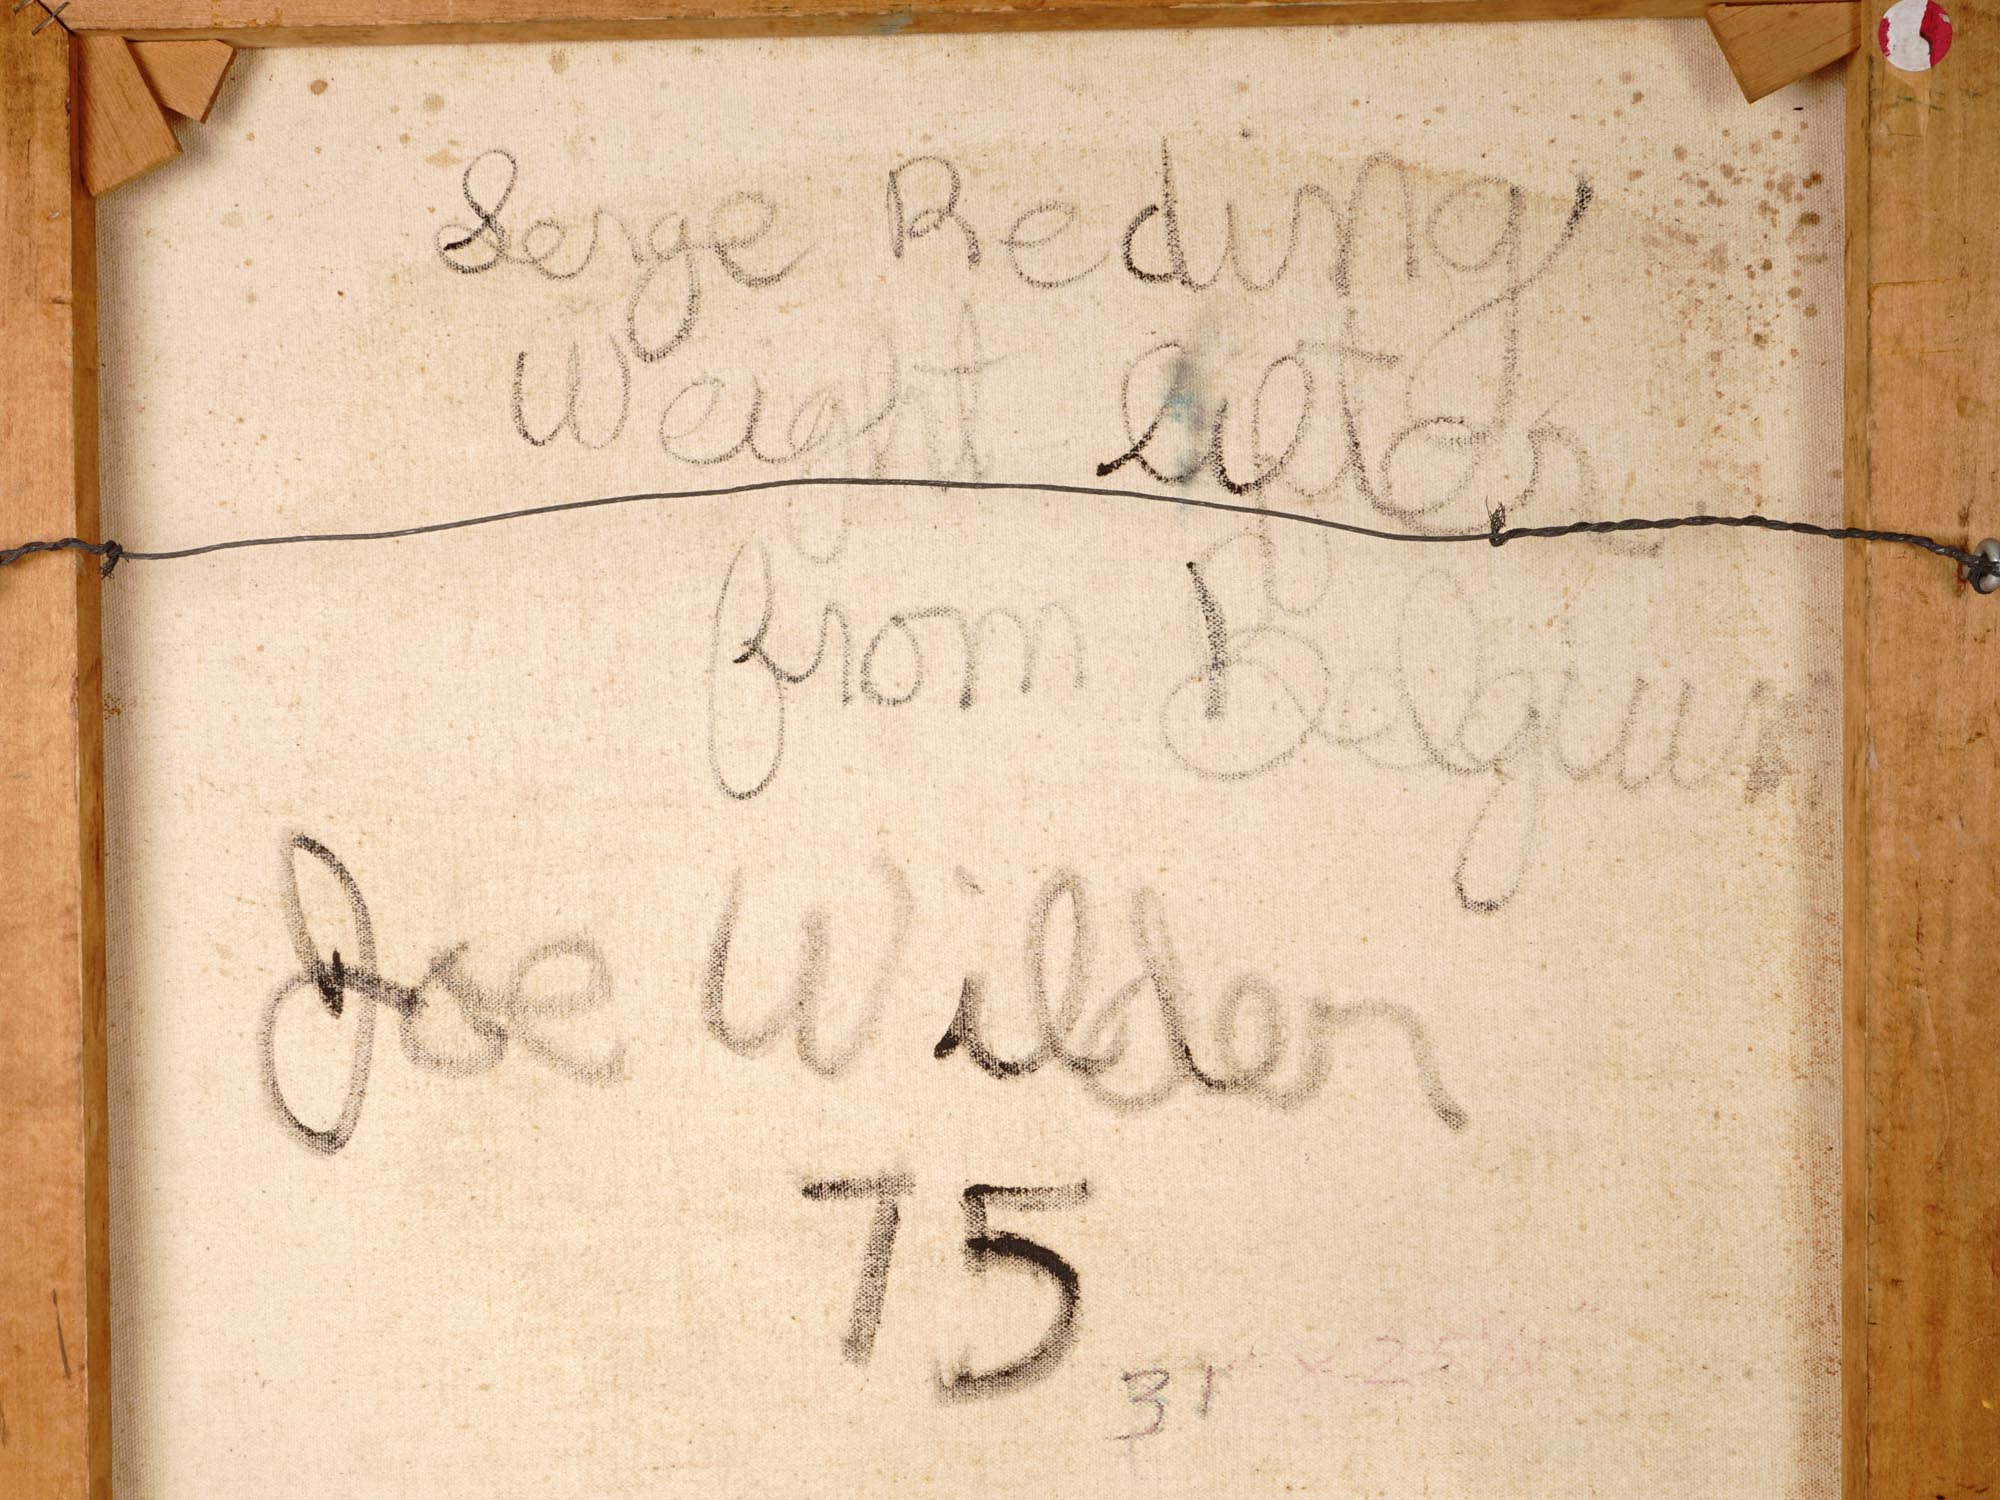 Serge Reding
Weight Lifter
from Belgium
Joe Wilson
75
31" x 25